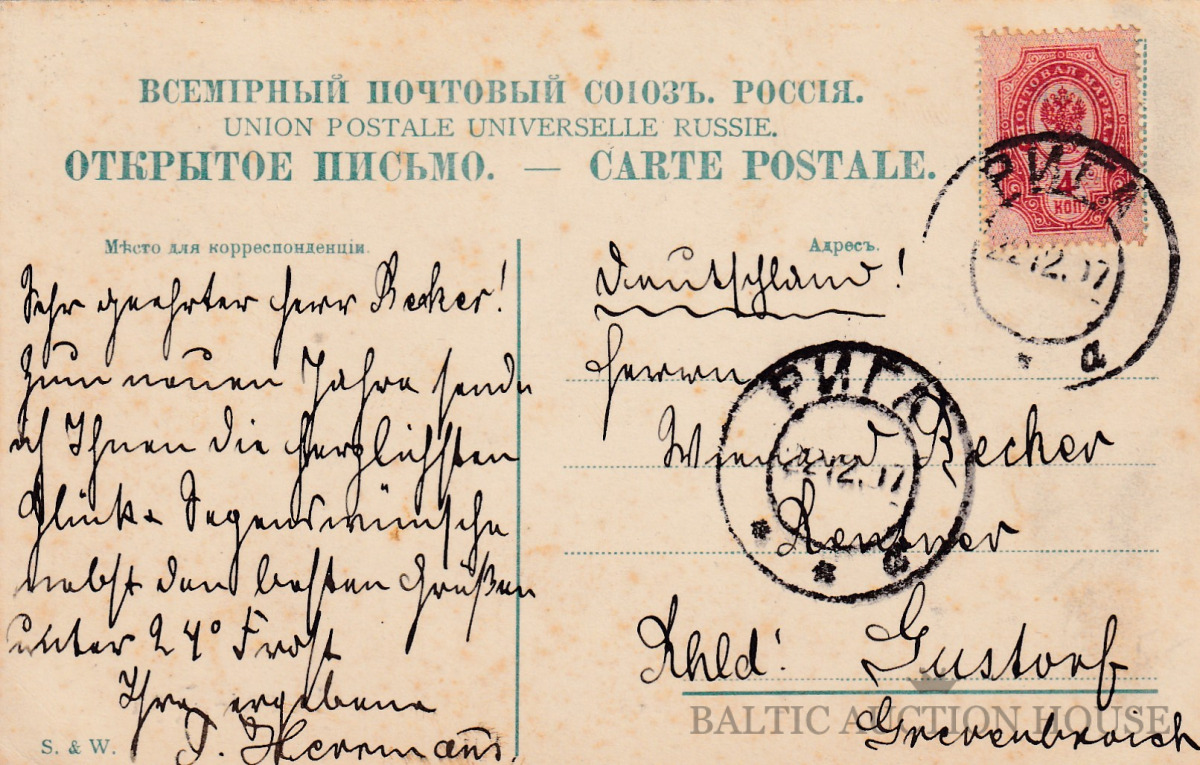 ВСЕМІРНЫЙ ПОЧТОВЫЙ СОЮЗЪ. РОССІЯ.
UNION POSTALE UNIVERSELLE RUSSIE.
ОТКРЫТОЕ ПИСЬМО. — CARTE POSTALE.
ПОЧТОВАЯ МАРКА
4
КОП
РИГА
22.12.07
a
Мѣсто для корреспонденціи.
Sehr geehrter Herr Becker!
Zum neuen Jahre sende
ich Ihnen die herzlichsten
Glück & Segenswünsche
nebst den besten Grüßen
unter 24° Frost
Ihre ergebene
Herrmann.
S. & W.
Адресъ.
Deutschland!
Herrn
Wienand Becker
Rentner
Rhld: Gustorf
Grevenbroich
РИГА
22.12.07
a
BALTIC AUCTION HOUSE